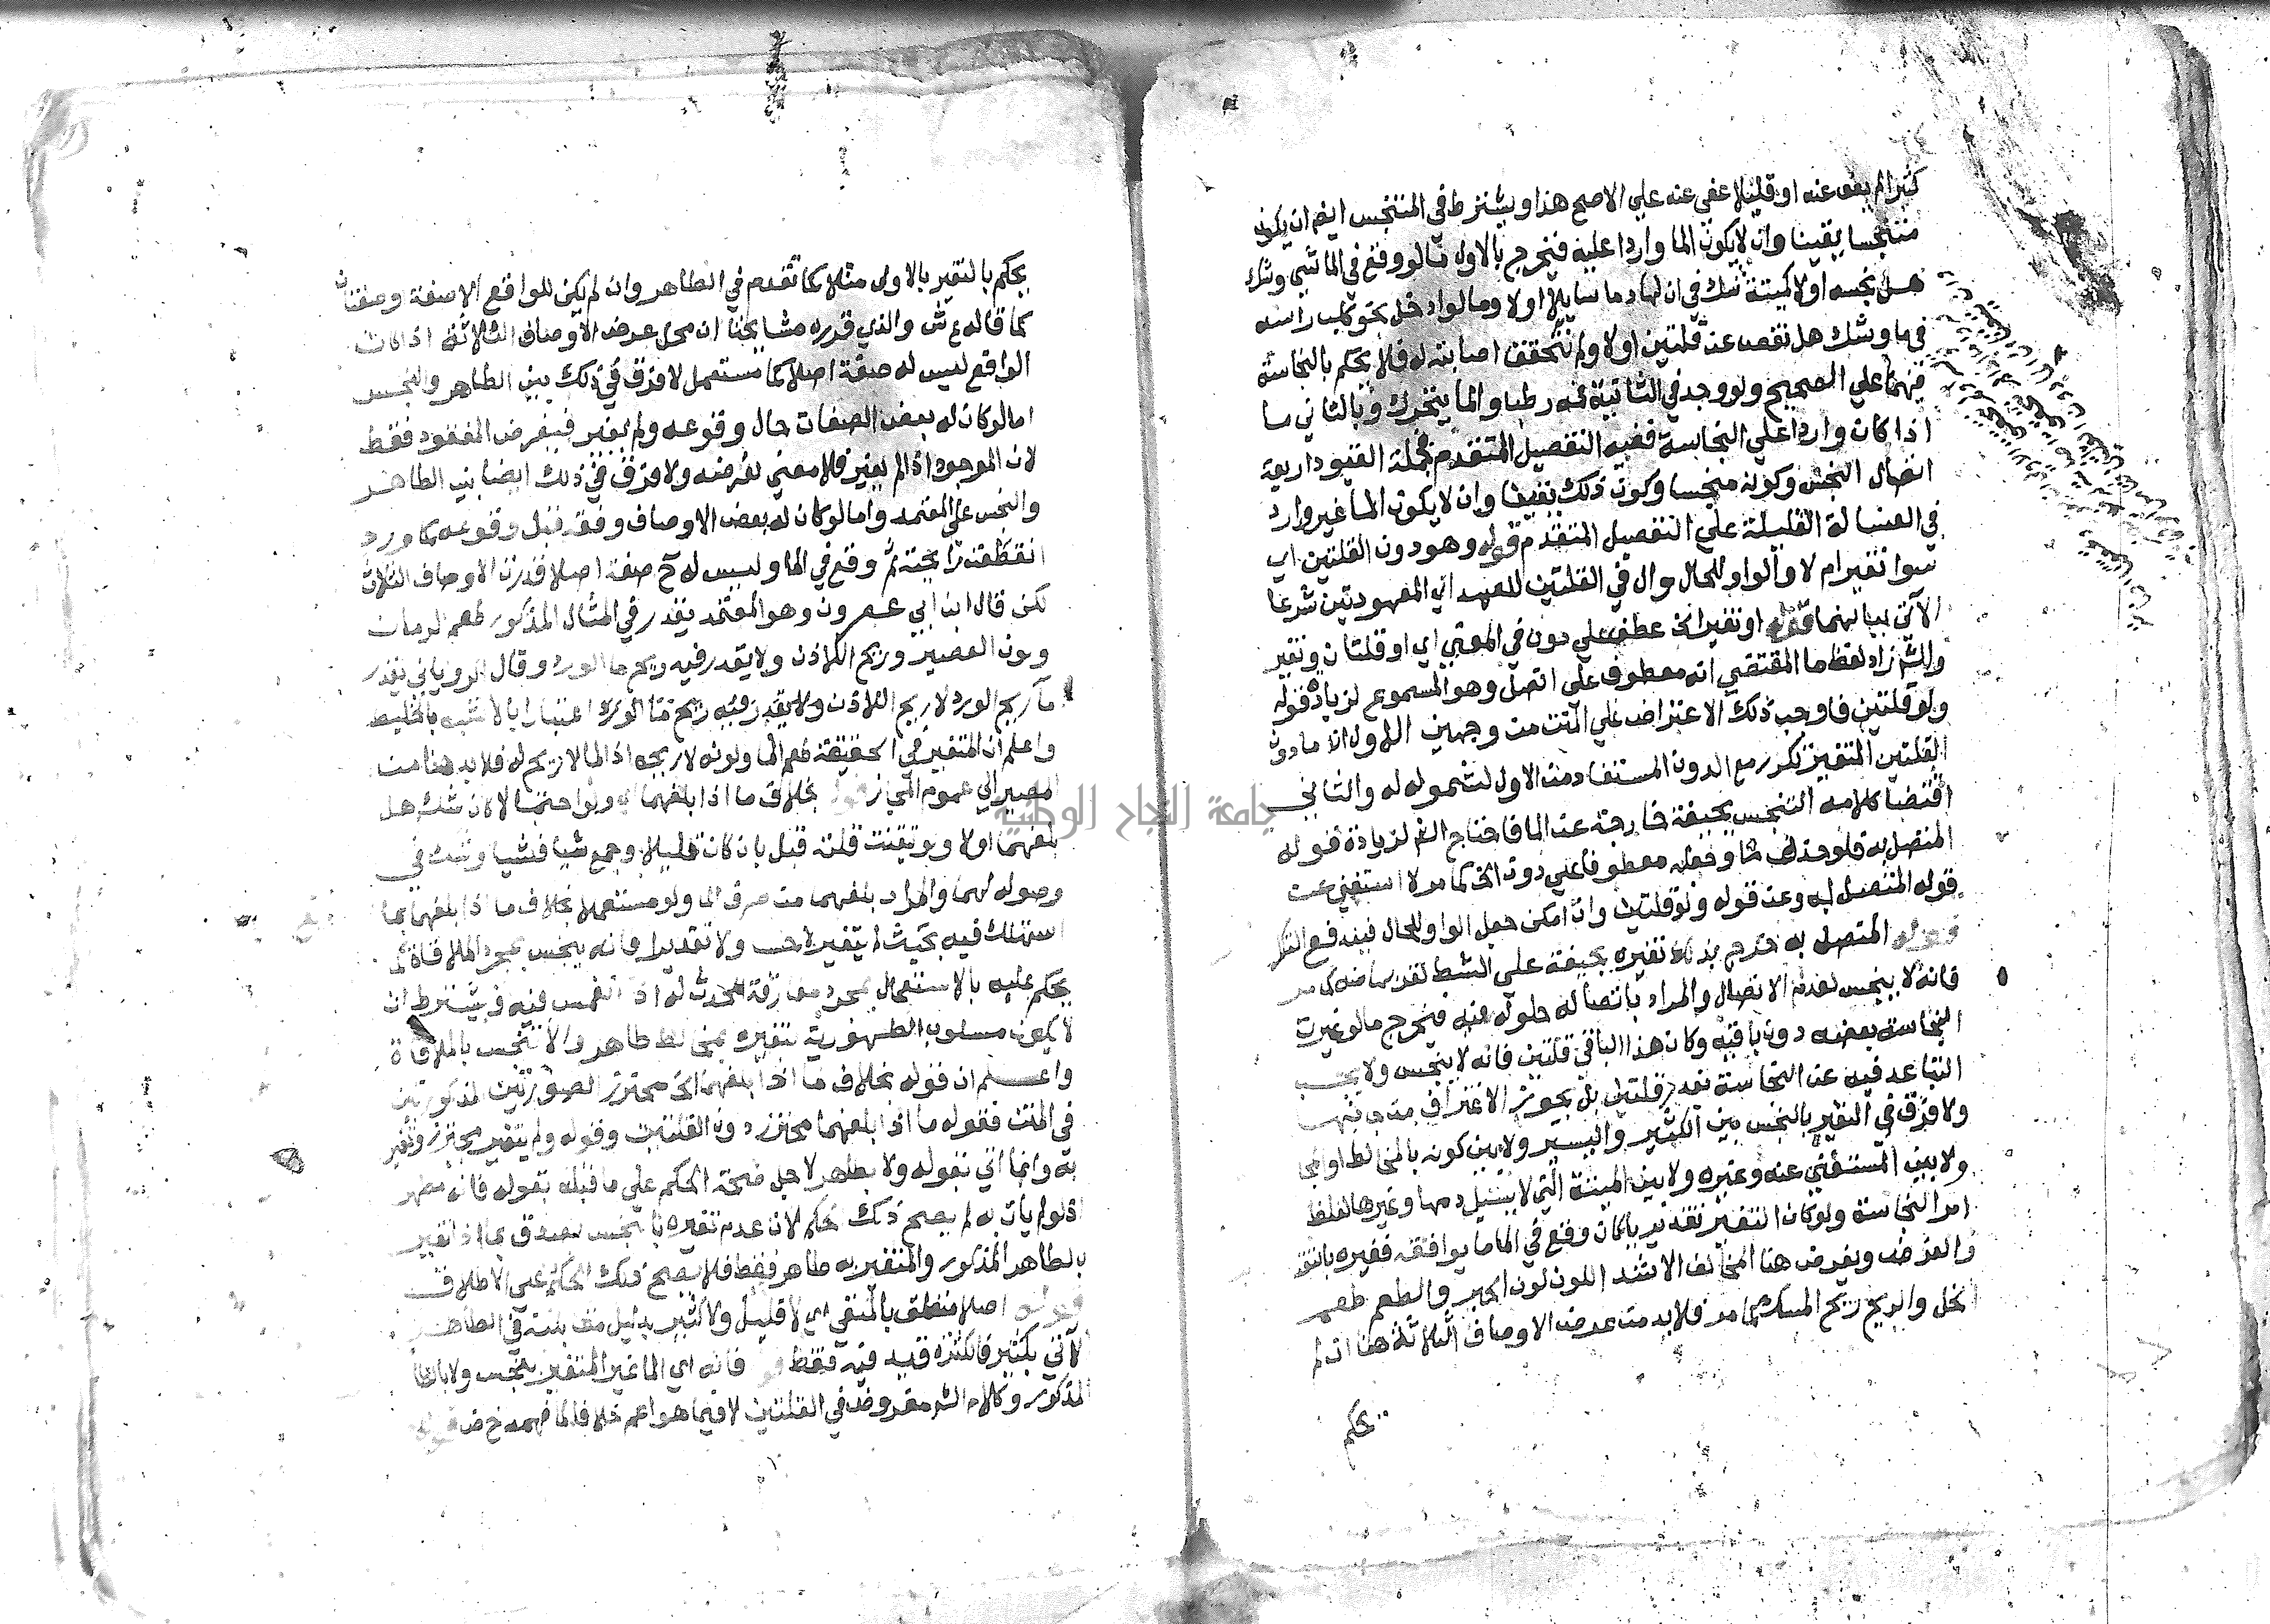 كثيرا لم يعف عنه او قليلا عفي عنه علي الاصح هذا ويشترط في المتنجس ايضا ان يكون
متنجسا يقينا وان لا يكون الما واردا عليه فخرج بالاول ما لو وقع في الما شي وشك
هل نجسه اولا كميتة شك في ان لها دما سايلا اولا وما لو ادخل نحو كلب راسه
في ما وشك هل نقص عن قلتين اولا ولم تتحقق اصابته له فلا يحكم بالنجاسة
فيهما علي الصحيح ولو وجد في الثانية فمه رطبا والما يتحرك وبالثاني ما
اذا كان واردا علي النجاسة ففيه التفصيل المتقدم فجملة القيود اربعة
اتصال النجس وكونه منجسا وكون ذلك يقينا وان لا يكون الما غير وارد
في الغسالة القليلة علي التفصيل المتقدم قوله وهو دون القلتين اي
سوا تغير ام لا والواو للحال وال في القلتين للعهد اي المعهودتين شرعا
الآتي بيانهما قوله او تغير الخ عطف علي دون في المعني اي او قلتان وتغير
والشم زاد لفظ ما المقتضي انه معطوف علي اتصل وهو المسموع لزيادة قوله
ولو قلتين فاوجب ذلك الاعتراض علي المتن من وجهين الاول ان ما دون
القلتين المتغير تكرر مع الدون المستفاد من الاول لشموله له والثاني
اقتضا كلامه التنجس بجيفة خارجة عن الما فاحتاج الشم لزيادة قوله
المتصل به فلو حذف ما وجعله معطوفا علي دون الخ كما مر لاستغني عن
قوله المتصل به وعن قوله ولو قلتين وان امكن جعل الواو للحال فيندفع التكرار
قوله المتصل به خرج بذلك تغيره بجيفة علي الشط لقربها منه كما مر
فانه لا ينجس لعدم الاتصال والمراد باتصاله حلوله فيه فيخرج ما لو غيرت
النجاسة بعضه دون باقيه وكان هذا الباقي قلتين فانه لا ينجس ولا يجب
التباعد فيه عن النجاسة بقدر قلتين بل يجوز الاغتراف من جانبها
ولا فرق في التغير بالنجس بين الكثير واليسير ولا بين كونه بالمخالط او المجا
ولا بين المستغني عنه وغيره ولا بين الميتة التي لا يسيل دمها وغيرها لغلظ
امر النجاسة ولو كان التغير تقديريا كان وقع في الما ما يوافقه فغيره بالتقدير
والفرض ويفرض هنا المخالف الاشد اللون لون الحبر والطعم طعم
الخل والريح ريح المسك كما مر فلا بد من عرض الاوصاف الثلاثة هنا ان لم
يحكم
يحكم بالتغير بالاول مثلا كما تقدم في الطاهر وان لم يكن للواقع الا صفة وصفتان
كما قاله ع ش والذي قرره مشايخنا ان محل عرض الاوصاف الثلاثة اذا كان
الواقع ليس له صفة اصلا كما مستعمل لا فرق في ذلك بين الطاهر والنجس
اما لو كان له بعض الصفات حال وقوعه ولم يغير فيفرض المفقود فقط
لان الموجود اذا لم يغير فلا معني لفرضه ولا فرق في ذلك ايضا بين الطاهر
والنجس علي المعتمد واما لو كان له بعض الاوصاف وفقد قبل وقوعه كما ورد
انقطعت رايحته ثم وقع في الما وليس له ح صفة اصلا قدرت الاوصاف الثلاث
لكن قال ابن ابي عصرون وهو المعتمد يقدر في المثال المذكور طعم الرمان
ولون العصير وريح اللاذن ولا يقدر فيه ريح ما الورد وقال الروياني يقدر
ما ريح الورد لا ريح اللاذن ولا يقدر فيه ريح ما الورد اعتبارا بالاشبه بالخليط
واعلم ان المتغير في الحقيقة طعم الما ولونه لا ريحه اذ الما لا ريح له فلا بد هنا من
المصير الي عموم المجاز قوله بخلاف ما اذا بلغهما اي ولو احتمالا كان شك هل
بلغهما اولا ولو تيقنت قلته قبل بان كان قليلا وجمع شيا فشيا وشك في
وصوله لهما والمراد بلغهما من صرف الما ولو مستعملا بخلاف ما اذا بلغهما بما
استهلك فيه بحيث لم يتغير لا حسا ولا تقديرا فانه ينجس بمجرد الملاقاة كما
يحكم عليه بالاستعمال بمجرد مفارقة المحدث له اذا انغمس فيه ويشترط ان
لا يكون مسلوب الطهورية بتغيره بمخالط طاهر والا تنجس بالملاقاة
واعلم ان قوله بخلاف ما اذا بلغهما الخ محترز الصورتين المذكورتين
في المتن فقوله ما اذا بلغهما محترز دون القلتين وقوله ولم يتغير محترز وتغير
به وانما اتي بقوله ولا بطاهر لاجل صحة الحكم علي ما قبله بقوله فانه مطهر
اذ لو لم يات به لم يصح ذلك الحكم لان عدم تغيره بالنجس يصدق بما اذا تغير
بالطاهر المذكور والمتغير به طاهر فقط فلا يصح ذلك الحكم علي الاطلاق
قوله اصلا متعلق بالمنفي اي لا قليل ولا كثير بدليل مقابلته في الطاهر
الآتي بكثير فالكثرة قيد فيه فقط فانه اي الما غير المتغير بنجس ولا بالطا
المذكور وكلام الشم مفروض في القلتين لا فيما هو اعم خلافا لما فهمه خ ض قوله